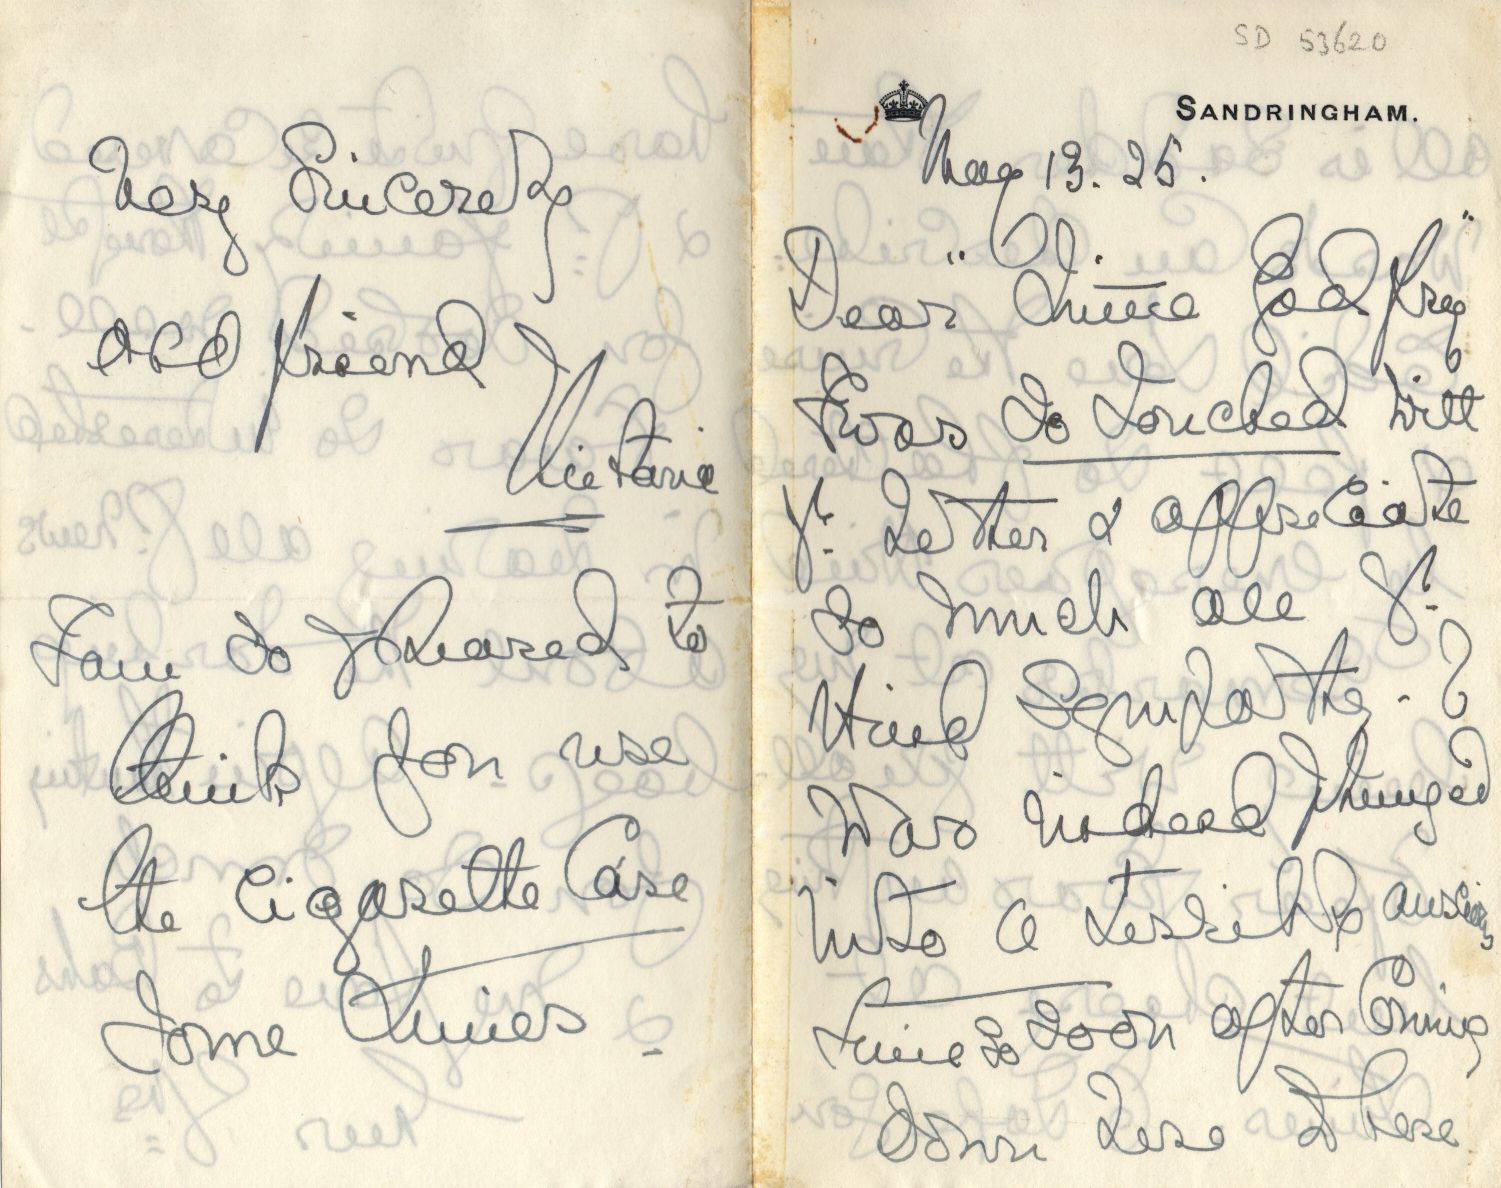 SD 53620
SANDRINGHAM.
May 13. 25.
Dear "Time Godfrey"
I was so touched with
yr. letter & appreciate
so much all yr.
kind sympathy. I
was indeed plunged
into a terribly anxious
time so soon after coming
down here & these
Very Sincerely
old friend
Victoria
I am so pleased to
think you use
the Cigarette Case
some times.